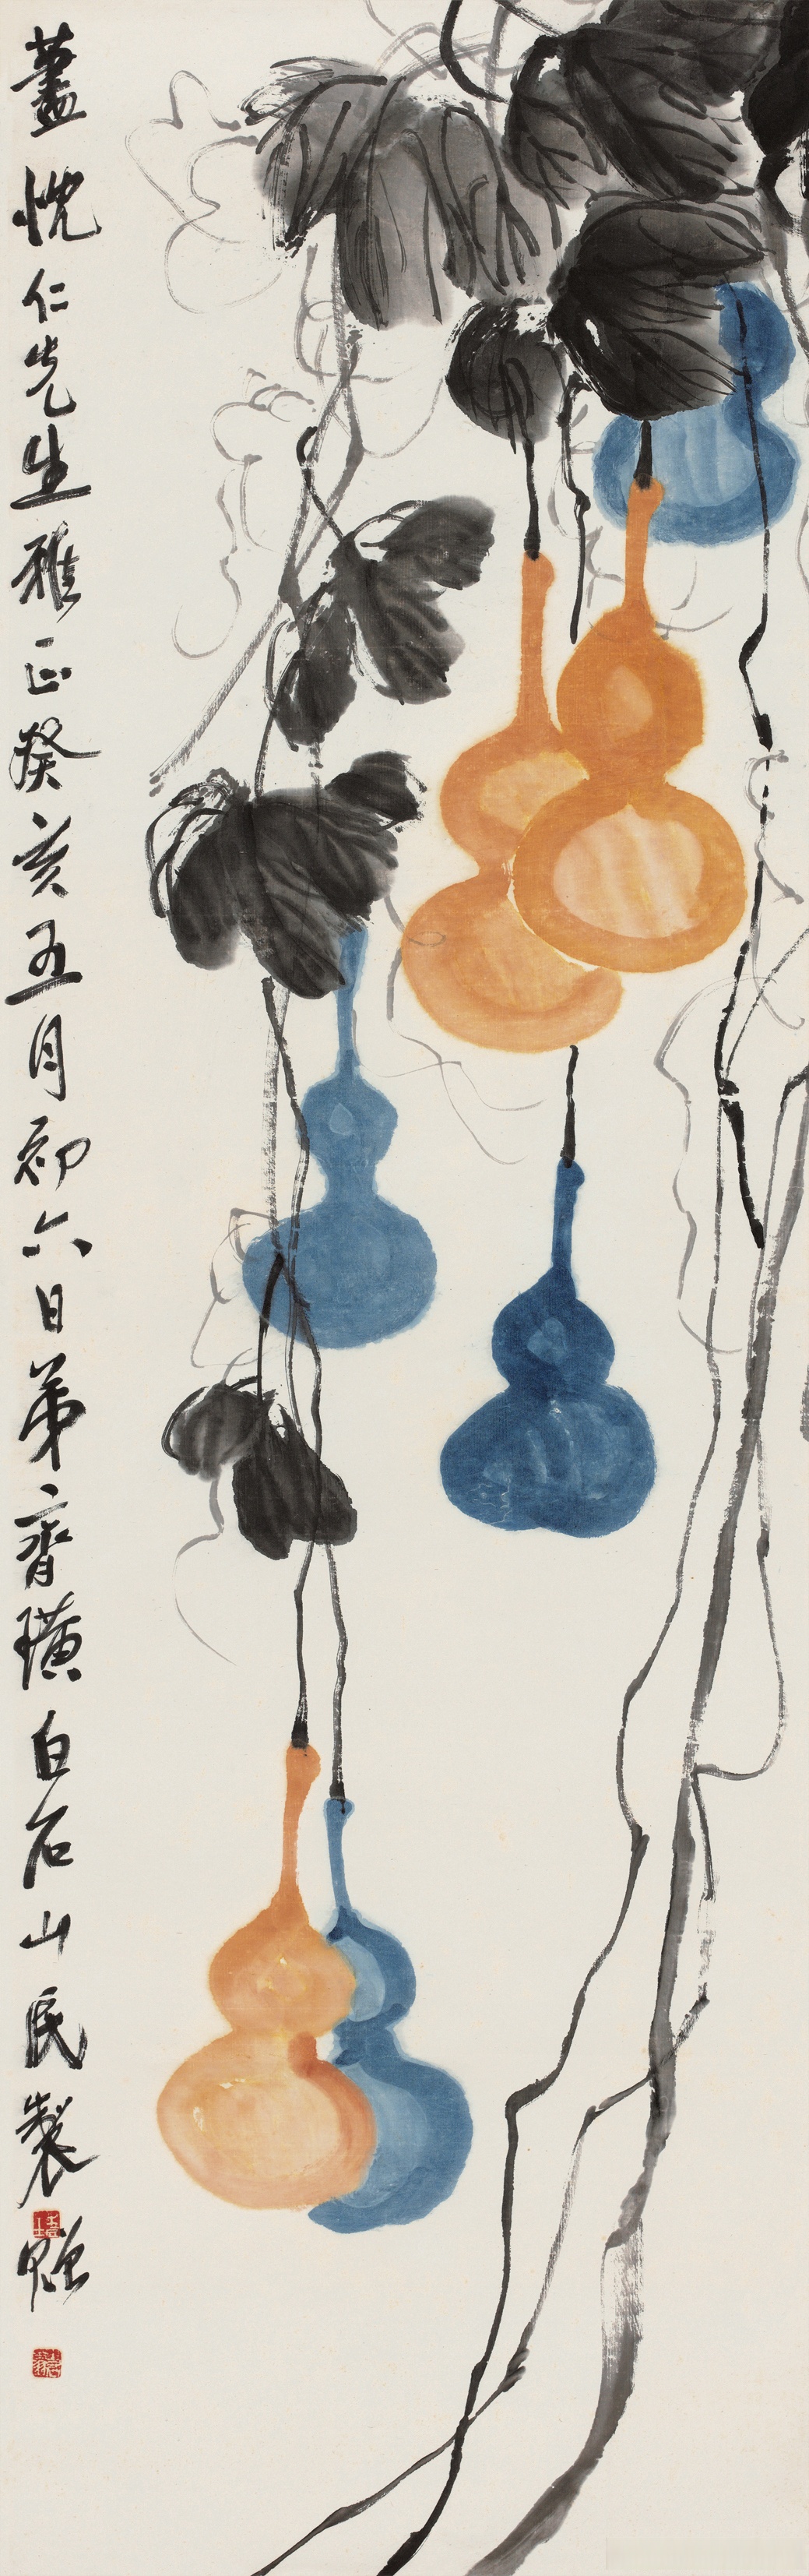 藎忱仁先生雅正癸亥五月初六日弟齊璜白石山民製贈